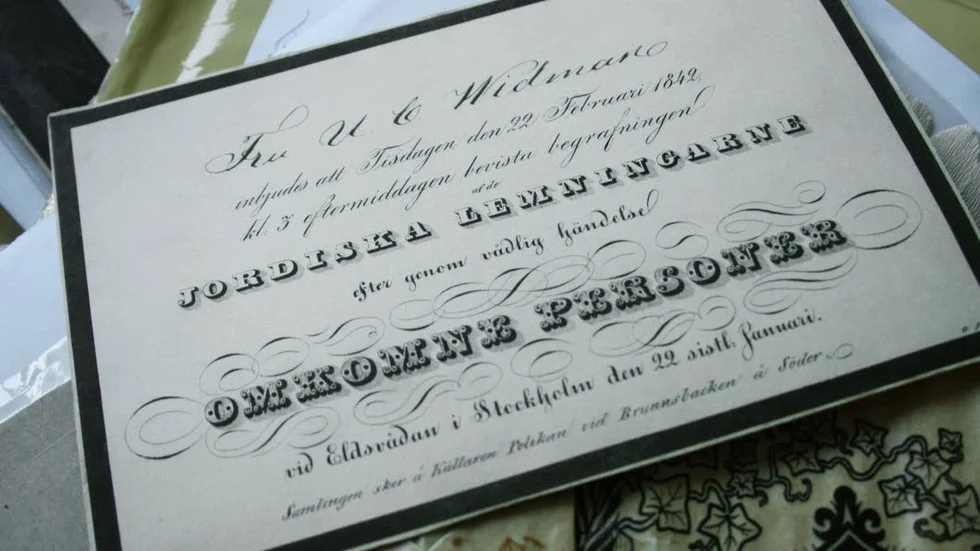 Fru U C Widman
inbjudes att Tisdagen den 22 Februari 1842,
kl. 3 eftermiddagen bevista begrafningen
af de
JORDISKA LEMNINGARNE
efter genom vådlig händelse
OMKOMNE PERSONER
vid Eldsvådan i Stockholm den 22 sistl. Januari.
Samlingen sker å Källaren Pelikan vid Brunnsbacken å Söder.